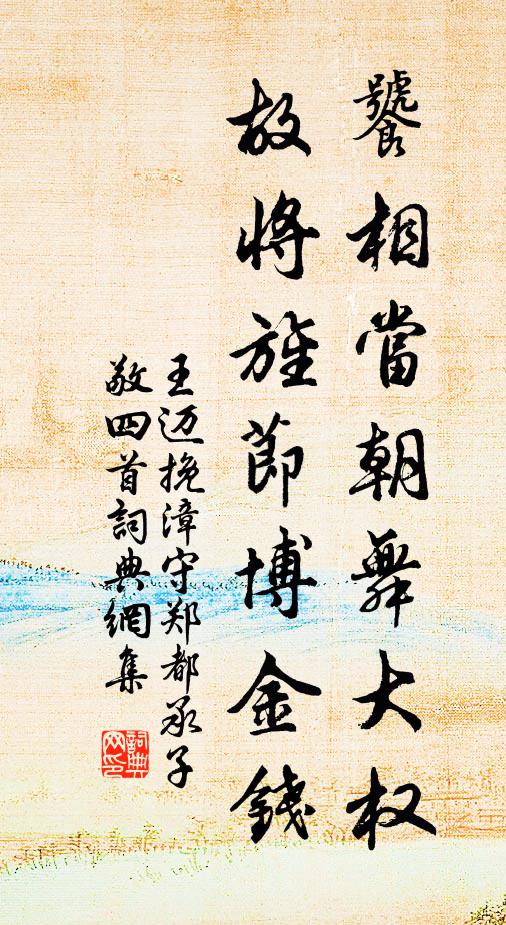 饕相當朝舞大权
故將旌節博金錢
王迈挽漳守郑都承子
敬四首詞典網集
詞典
网印